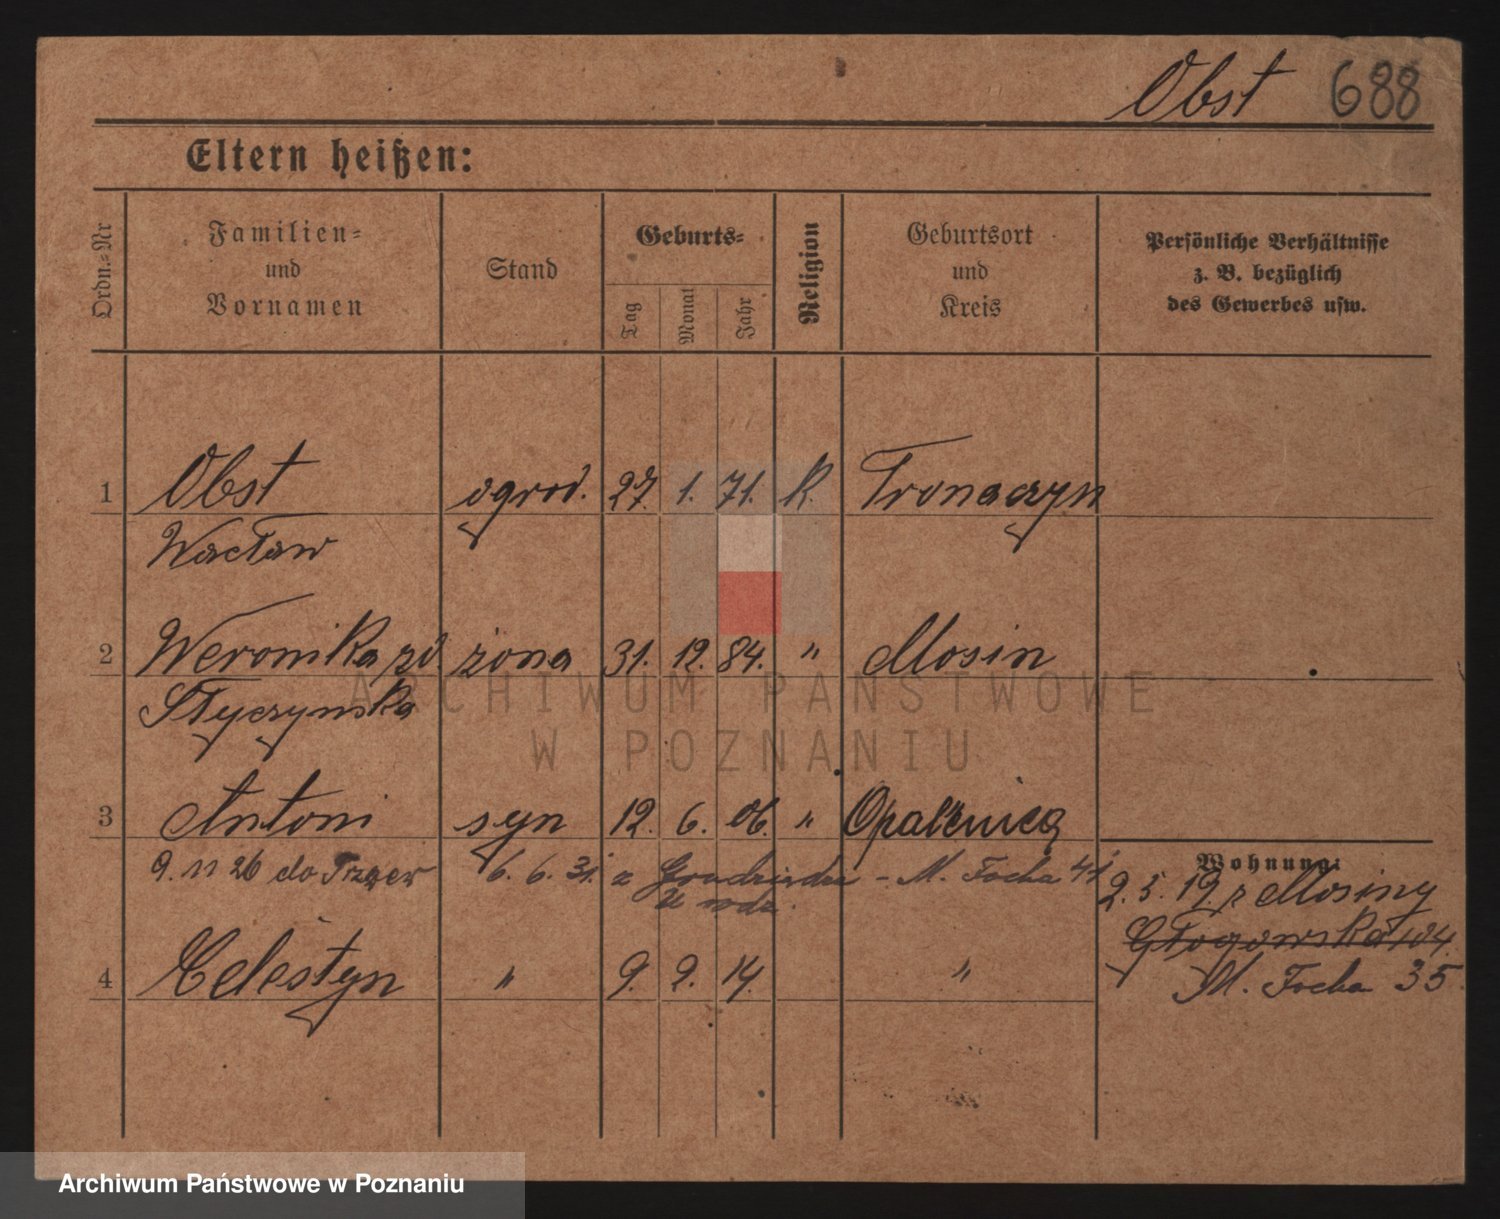 Obst 688
Eltern heißen:
Ordn.=Nr
Familien=
und
Vornamen
Stand
Geburts=
Tag
Monat
Jahr
Religion
Geburtsort
und
Kreis
Persönliche Verhältnisse
z. B. bezüglich
des Gewerbes usw.
1 Obst ogrod. 27. 1. 71. R. Tronaczyn
Wacław
2 Weronika zd. żona 31. 12. 84. " Mosin
Styczynska
ARCHIWUM PAŃSTWOWE
W POZNANIU
3 Antoni syn 12. 6. 06. " Opalenica
9. 11 26 do 6. 6. 31. z Grudziądza - M. Focha 41
u rodz.
Wohnung:
2. 5. 19. z Mosiny
Głogowska 104.
M. Focha 35
4 Celestyn " 9. 2. 14. "
Archiwum Państwowe w Poznaniu